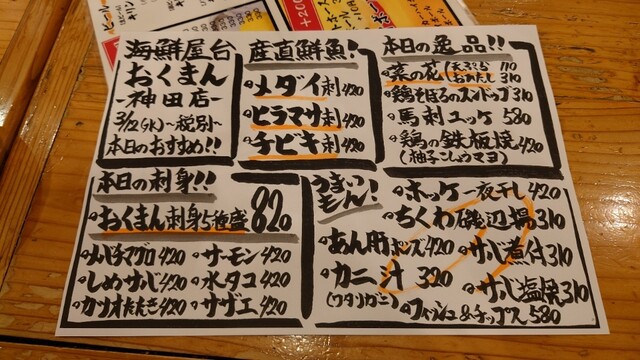 海鮮屋台
おくまん
-神田店-
3/2(水)~税別~
本日のおすすめ!!
産直鮮魚!
メダイ刺420
ヒラマサ刺420
チビキ刺420
本日の逸品!!
菜の花(天ぷら 110
おひたし 310
鶏そぼろのスノドップ310
馬刺ユッケ 580
鶏の鉄板焼420
(柚子こしょうマヨ)
本日の刺身!!
おくまん刺身5種盛 820
メバチマグロ420
サーモン420
しめサバ420
水タコ420
カツオたたき420
サザエ420
うまいもん!
ホッケ一夜干し420
ちくわ磯辺揚310
あん肝ポン酢420
サバ煮付310
カニ汁 320
(ワタリガニ)
サバ塩焼310
フィッシュ&チップス580